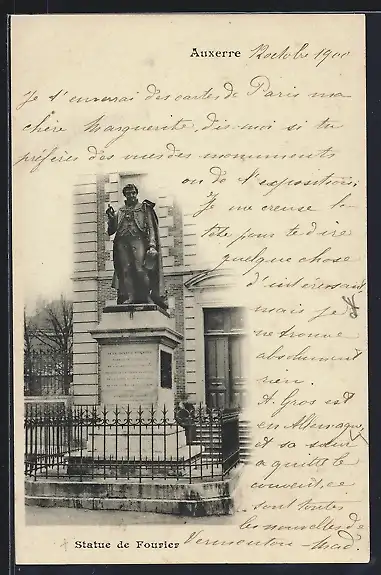 Auxerre 12 octobre 1900
Je t'enverrai des cartes de Paris ma
chère Marguerite, dis-moi si tu
préfères des vues des monuments
ou de l'exposition;
Je me creuse la
tête pour te dire
quelque chose
d'intéressant
mais je
ne trouve
absolument
rien.
A. Gros est
en Allemagne,
et sa sœur
a quitté le
couvent, ce
sont toutes
les nouvelles de
Vermenton
Statue de Fourier